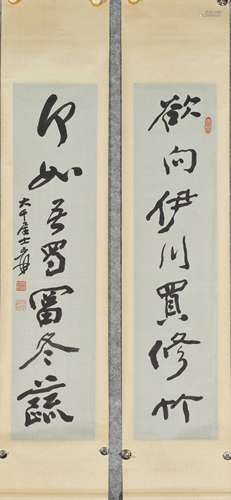 欲向伊川買修竹
豈如吾蜀富冬蔬
大千居士爰